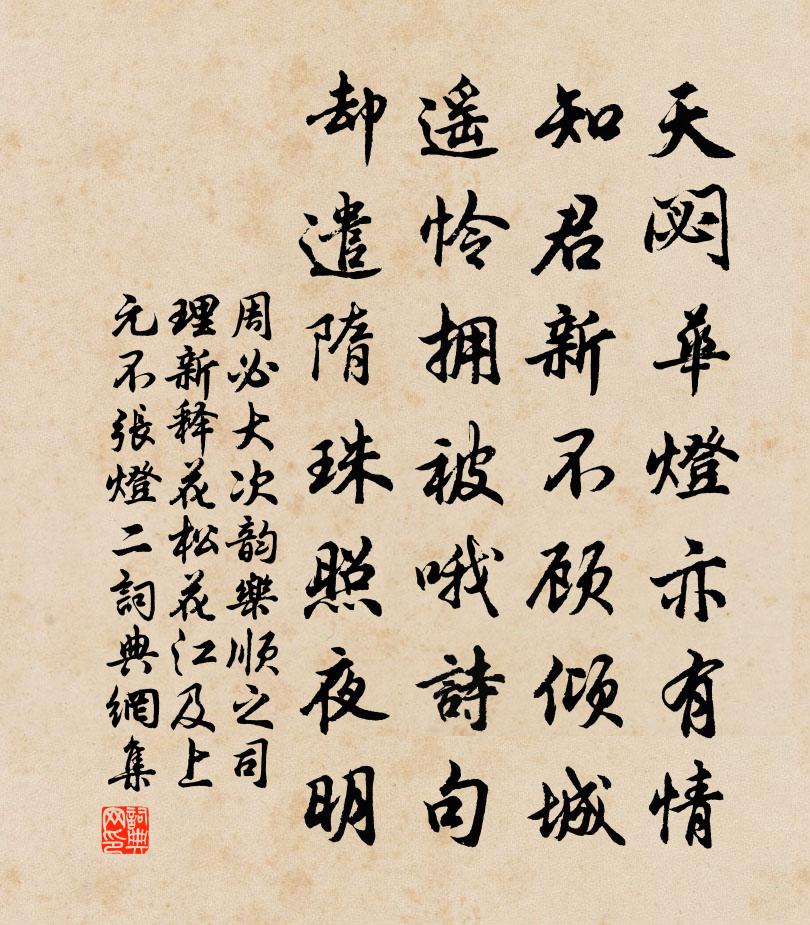 天閟華燈亦有情
知君新不顾倾城
遥怜拥被哦詩句
却遣隋珠照夜明
周必大次韵樂順之司
理新释花松花江及上
元不張燈二詞典網集
詞典网印